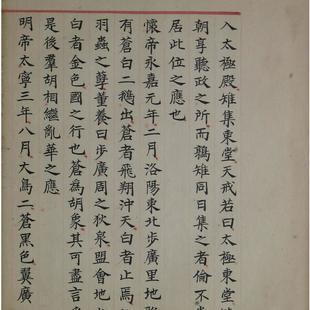 入太極殿雉集東堂天戒若曰太極東堂
朝享聽政之所而鶉雉同日集之者倫不
居此位之應也
懷帝永嘉元年二月洛陽東北步廣里地
有蒼白二鵝出蒼者飛翔沖天白者止焉
羽蟲之孽董養曰步廣周之狄泉盟會地
白者金色國之行也蒼為胡象其可盡言
是後羣胡相繼亂華之應
明帝太寧三年八月大鳥二蒼黑色翼廣